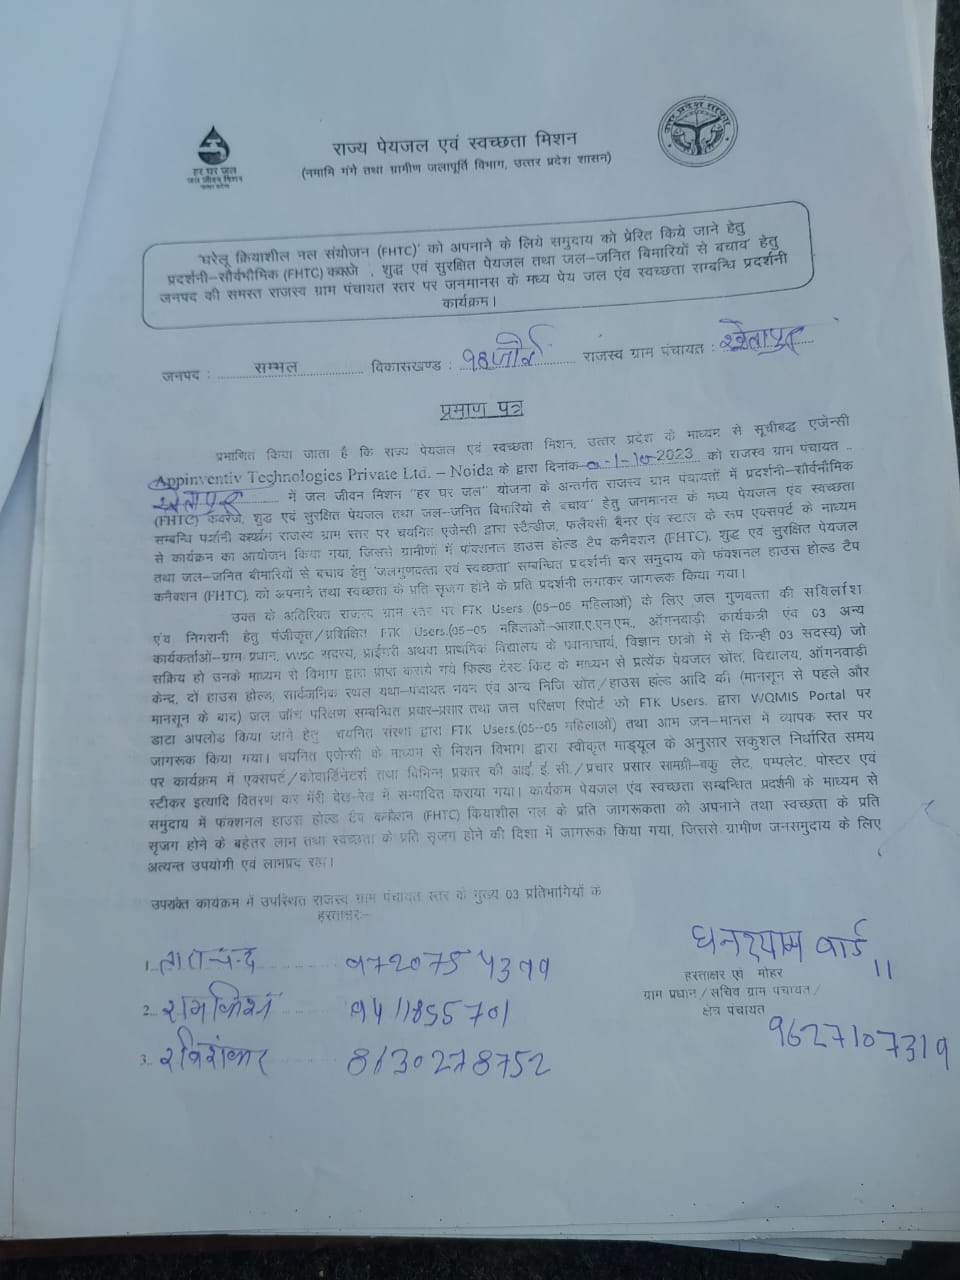 राज्य पेयजल एवं स्वच्छता मिशन
(नमामि गंगे तथा ग्रामीण जलापूर्ति विभाग, उत्तर प्रदेश शासन)
हर घर जल
जल जीवन मिशन
'घरेलू क्रियाशील नल संयोजन (FHTC)' को अपनाने के लिये समुदाय को प्रेरित किये जाने हेतु
प्रदर्शनी–सौर्वभौमिक (FHTC) कवरेज , शुद्ध एवं सुरक्षित पेयजल तथा जल–जनित बिमारियों से बचाव' हेतु
जनपद की समस्त राजस्व ग्राम पंचायत स्तर पर जनमानस के मध्य पेय जल एंव स्वच्छता सम्बन्धि प्रदर्शनी
कार्यक्रम।
जनपद : सम्भल विकासखण्ड : राजस्व ग्राम पंचायत :
प्रमाण पत्र
प्रमाणित किया जाता है कि राज्य पेयजल एवं स्वच्छता मिशन, उत्तर प्रदेश के माध्यम से सूचीबद्ध एजेन्सी
Appinventiv Technologies Private Ltd. – Noida के द्वारा दिनांक 2023 को राजस्व ग्राम पंचायत ..
में जल जीवन मिशन "हर घर जल" योजना के अन्तर्गत राजस्व ग्राम पंचायतों में प्रदर्शनी–सौर्वभौमिक
(FHTC) कवरेज, शुद्ध एवं सुरक्षित पेयजल तथा जल–जनित बिमारियों से बचाव' हेतु जनमानस के मध्य पेयजल एंव स्वच्छता
सम्बन्धि राजस्व ग्राम स्तर पर चयनित एजेन्सी द्वारा स्टैन्डीज, फलैक्सी बैनर एंव स्टाल के रूप एक्सपर्ट के माध्यम
से कार्यक्रम का आयोजन किया गया, जिससे ग्रामीणों में फंक्शनल हाउस होल्ड टैप कनैक्शन (FHTC), शुद्ध एवं सुरक्षित पेयजल
तथा जल–जनित बीमारियों से बचाव हेतु 'जलगुणवत्ता एवं स्वच्छता' सम्बन्धित प्रदर्शनी कर समुदाय को फंक्शनल हाउस होल्ड टैप
कनैक्शन (FHTC), को अपनाने तथा स्वच्छता के प्रति सृजग होने के प्रति प्रदर्शनी लगाकर जागरूक किया गया।
उक्त के अतिरिक्त राजस्व ग्राम स्तर पर FTK Users (05–05 महिलाओं) के लिए जल गुणवत्ता की सविर्लाश
एंव निगरानी हेतु पंजीकृत/प्रशिक्षित FTK Users.(05–05 महिलाओं–आशा,ए.एन.एम., ऑगनवाड़ी कार्यकत्री एंव 03 अन्य
कार्यकर्ताओं–ग्राम प्रधान, VWSC सदस्य, प्राईमरी अथवा प्राथमिक विद्यालय के प्रधानाचार्य, विज्ञान छात्रो में से किन्ही 03 सदस्य) जो
सक्रिय हो उनके माध्यम से विभाग द्वारा प्राप्त कराये गये फिल्ड टेस्ट किट के माध्यम से प्रत्येक पेयजल स्रोत, विद्यालय, ऑगनवाडी
केन्द्र, दो हाउस होल्ड, सार्वजनिक स्थल यथा–पंचायत भवन एंव अन्य निजि स्रोत/हाउस हॉल्ड आदि की (मानसून से पहले और
मानसून के बाद) जल जॉच परिक्षण सम्बन्धित प्रचार–प्रसार तथा जल परिक्षण रिपोर्ट को FTK Users. द्वारा WQMIS Portal पर
डाटा अपलोड किया जाने हेतु चयनित संस्था द्वारा FTK Users.(05–05 महिलाओं) तथा आम जन–मानस में व्यापक स्तर पर
जागरूक किया गया। चयनित एजेन्सी के माध्यम से मिशन विभाग द्वारा स्वीकृत माड्यूल के अनुसार सकुशल निर्धारित समय
पर कार्यक्रम में एक्सपर्ट/कोवार्डिनेटरों तथा विभिन्न प्रकार की आई.ई.सी./प्रचार प्रसार सामग्री–बकु लेट, पम्पलेट, पोस्टर एवं
स्टीकर इत्यादि वितरण कर मेरी देख–रेख में सम्पादित कराया गया। कार्यक्रम पेयजल एंव स्वच्छता सम्बन्धित प्रदर्शनी के माध्यम से
समुदाय में फंक्शनल हाउस होल्ड टैप कनैक्शन (FHTC) कियाशील नल के प्रति जागरूकता को अपनाने तथा स्वच्छता के प्रति
सृजग होने के बेहतर लाभ तथा स्वच्छता के प्रति सृजग होने की दिशा में जागरूक किया गया, जिससे ग्रामीण जनसमुदाय के लिए
अत्यन्त उपयोगी एवं लाभप्रद रहा।
उपरोक्त कार्यक्रम में उपस्थित राजस्व ग्राम पंचायत स्तर के मुख्य 03 प्रतिभागियों के
हस्ताक्षरः–
1. ताराचन्द 9720754399
2. रामकिशन 9411855701
3. रविशंकर 8630278752
घनश्याम वार्ड 11
हस्ताक्षर एवं मोहर
ग्राम प्रधान/सचिव ग्राम पंचायत/
क्षेत्र पंचायत
9627107319